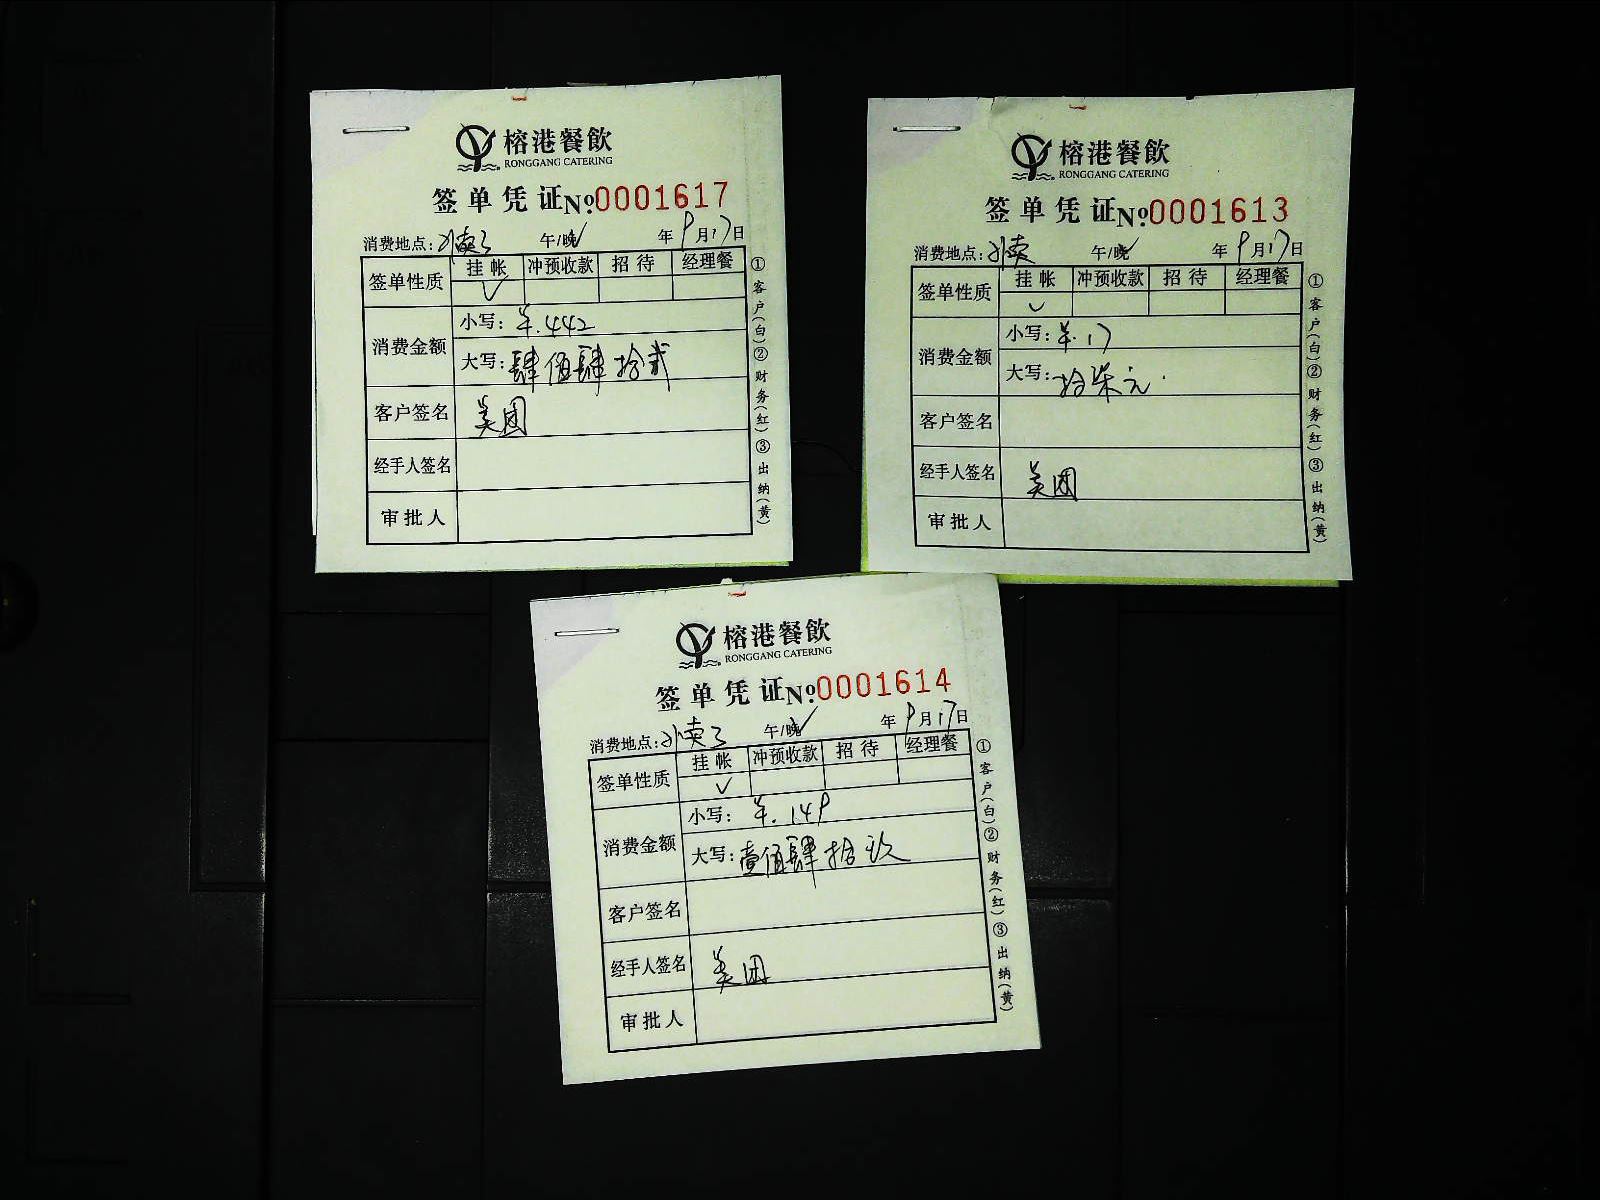 榕港餐飲
RONGGANG CATERING
签单凭证№0001617
消费地点:外卖3 午/晚✓ 年9月17日
签单性质 挂帐 冲预收款 招待 经理餐
✓
消费金额 小写:¥.442
大写:肆佰肆拾贰
客户签名 美团
经手人签名
审批人
①客户(白)②财务(红)③出纳(黄)
榕港餐飲
RONGGANG CATERING
签单凭证№0001613
消费地点:外卖 午/晚✓ 年9月17日
签单性质 挂帐 冲预收款 招待 经理餐
✓
消费金额 小写:¥.17
大写:拾柒元.
客户签名
经手人签名 美团
审批人
①客户(白)②财务(红)③出纳(黄)
榕港餐飲
RONGGANG CATERING
签单凭证№0001614
消费地点:外卖3 午/晚✓ 年9月17日
签单性质 挂帐 冲预收款 招待 经理餐
✓
消费金额 小写:¥.149
大写:壹佰肆拾玖
客户签名
经手人签名 美团
审批人
①客户(白)②财务(红)③出纳(黄)